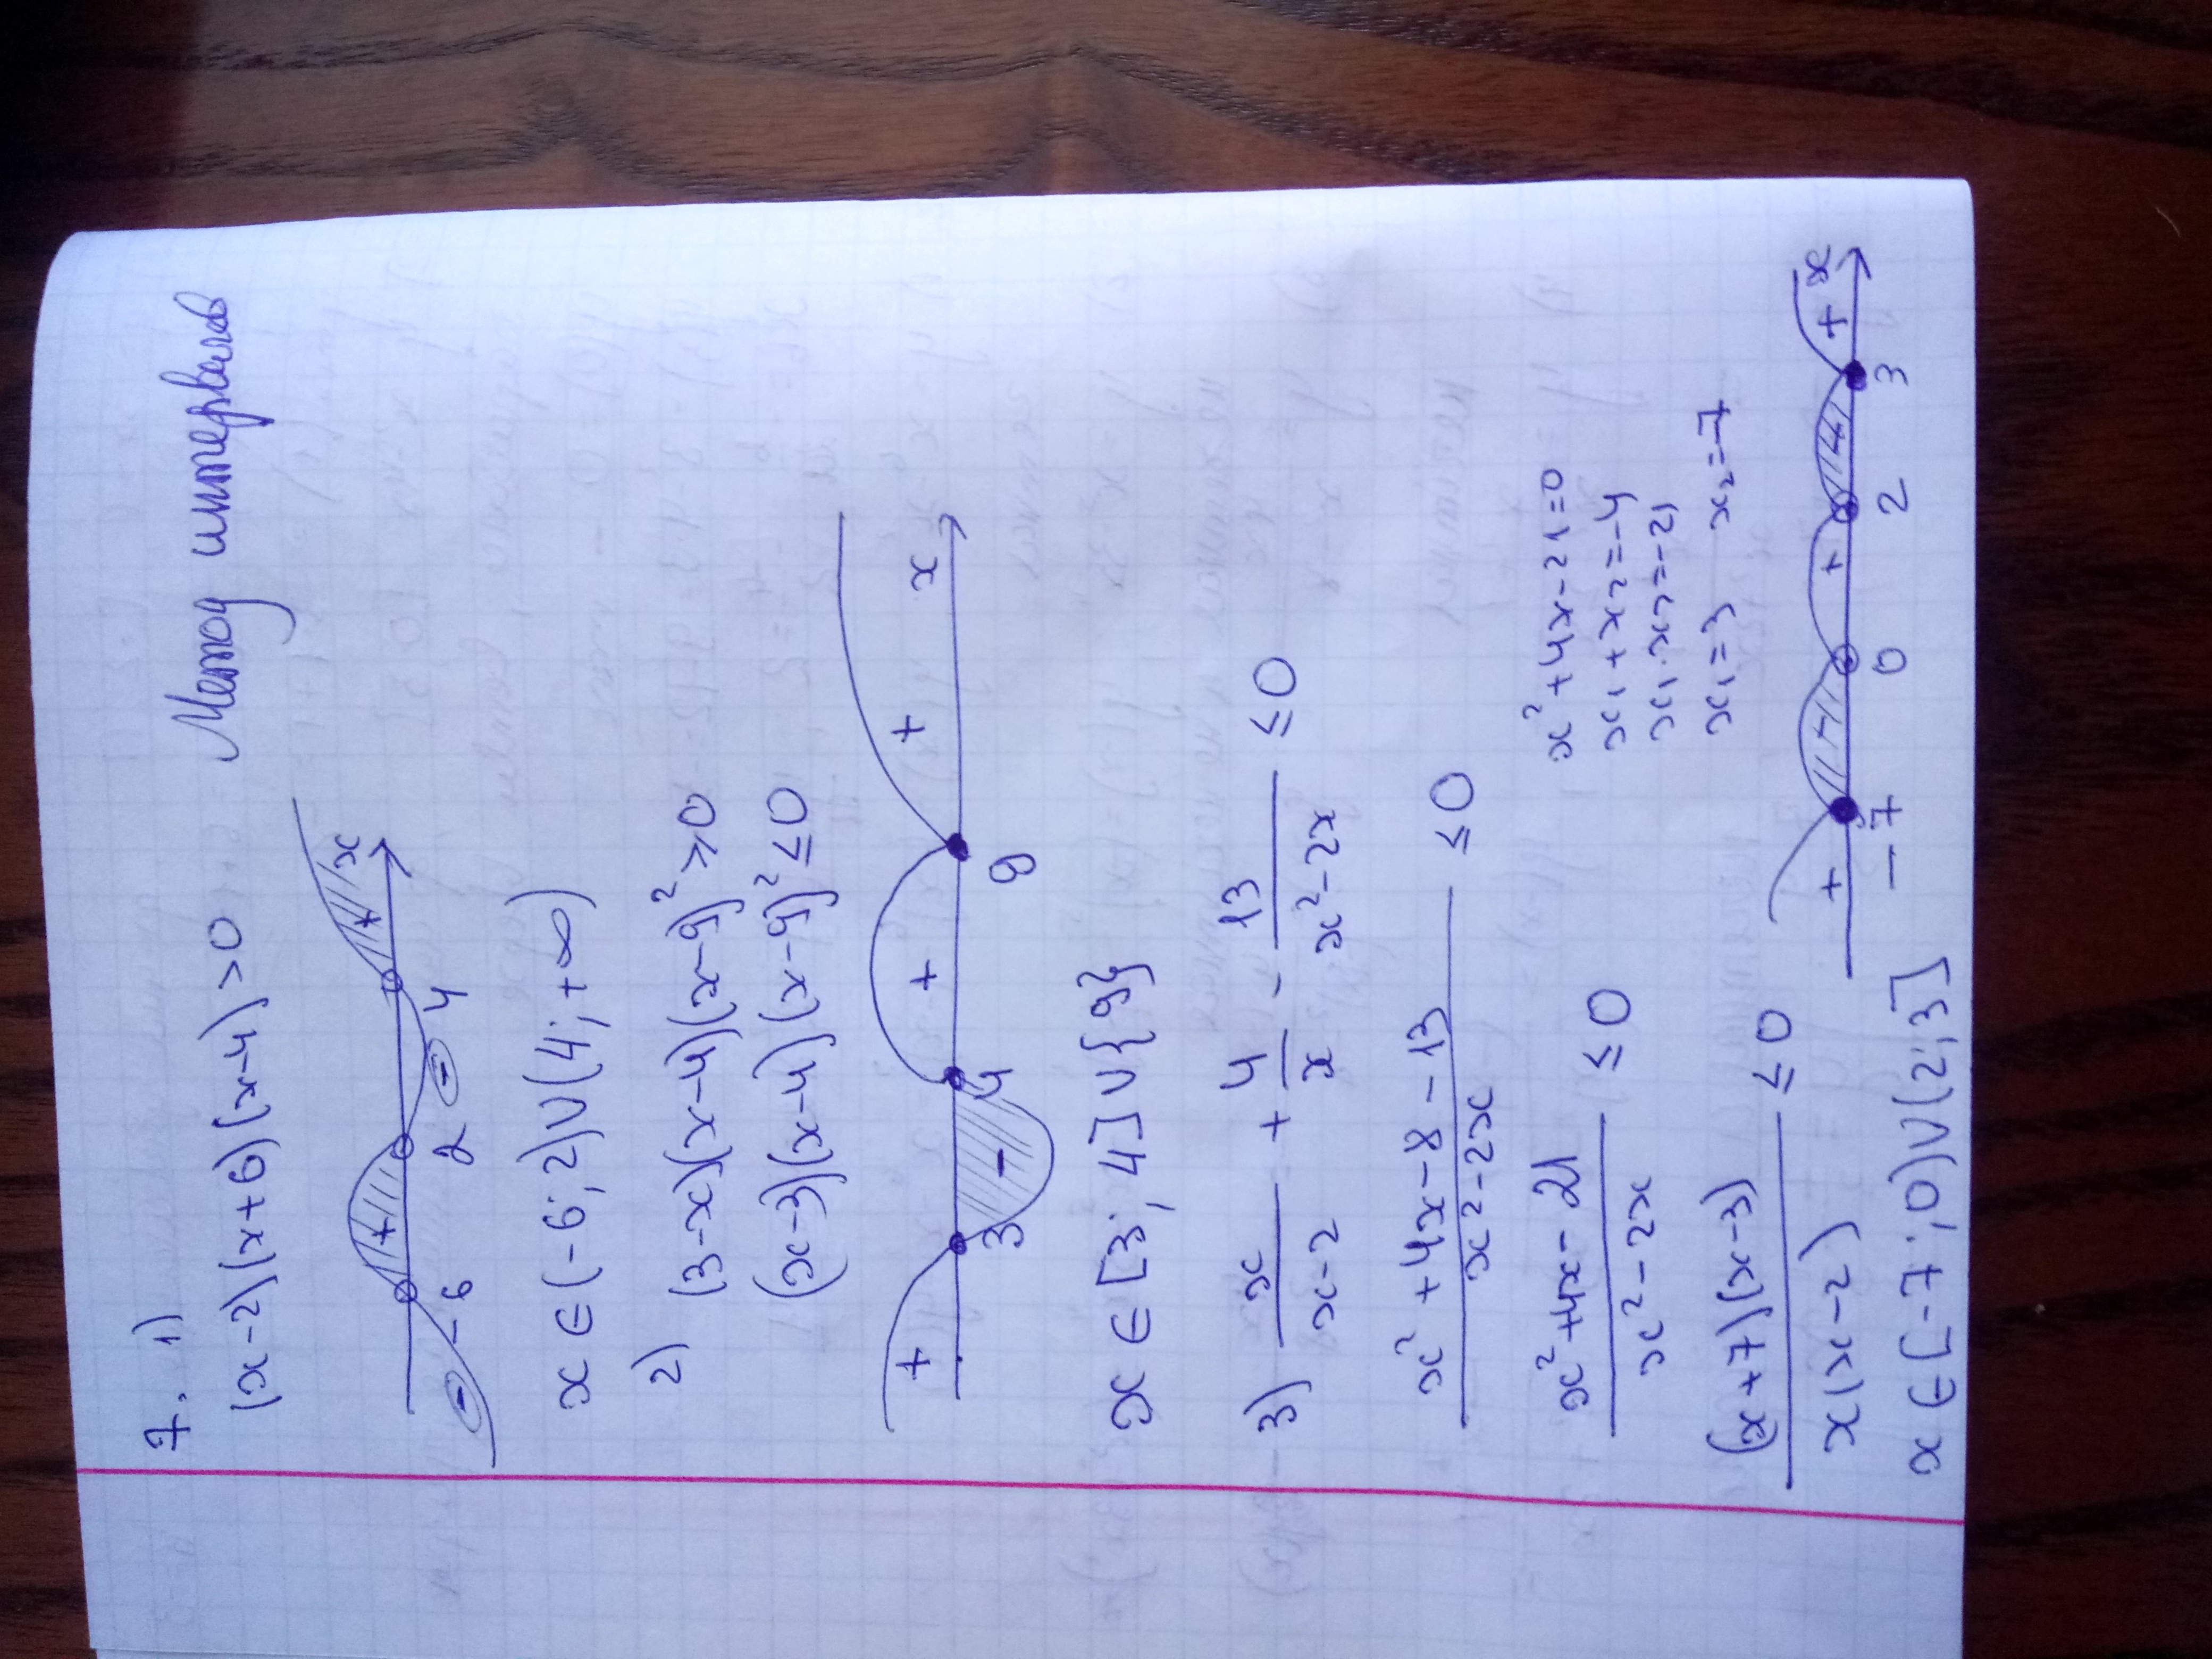 Метод интервалов
7. 1)
(x-2)(x+6)(x-4)>0
- + - + x
-6 2 4
x∈(-6;2)∪(4;+∞)
2) (3-x)(x-4)(x-9)²≥0
(x-3)(x-4)(x-9)²≤0
+ - + + x
3 4 9
x∈[3;4]∪{9}
3) x/(x-2) + 4/x - 13/(x²-2x) ≤0
(x²+4x-8-13)/(x²-2x) ≤0
(x²+4x-21)/(x²-2x) ≤0
x²+4x-21=0
x₁+x₂=-4
x₁·x₂=-21
x₁=3 x₂=-7
(x+7)(x-3)/(x(x-2)) ≤0
+ - + - + x
-7 0 2 3
x∈[-7;0)∪(2;3]